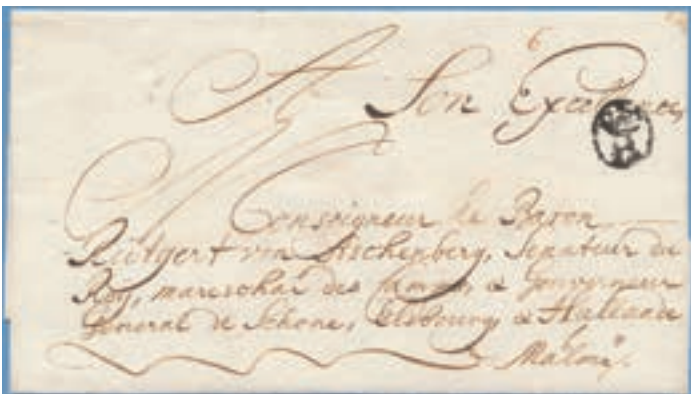 6
A Son Excellence,
Monseigneur le Baron
Rütgert von Aschenberg, Senateur du
Roy, mareschal des camps, & Gouverneur
General de Schone, & Hallande
Malmö.